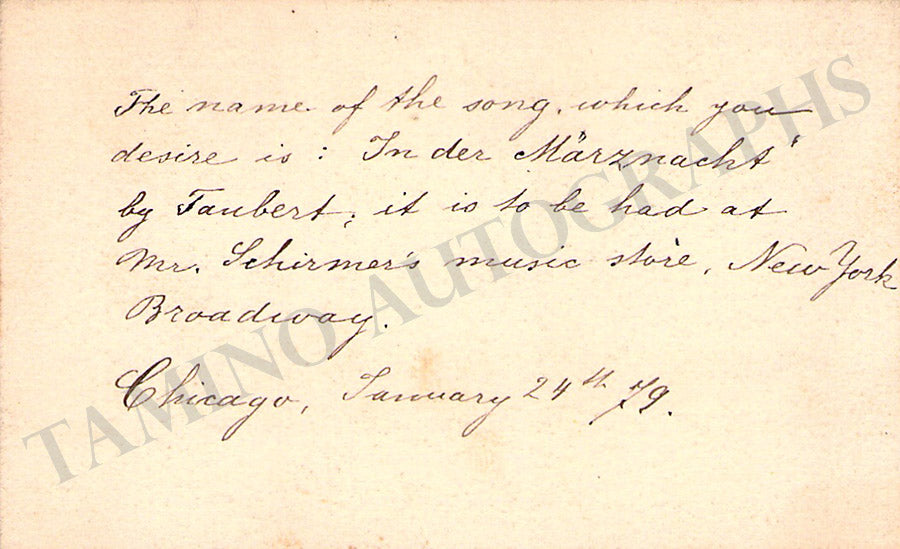 The name of the song, which you
desire is: "In der Märznacht"
by Taubert, it is to be had at
Mr. Schirmer's music store, New York
Broadway.
Chicago, January 24th 79.
TAMINO AUTOGRAPHS